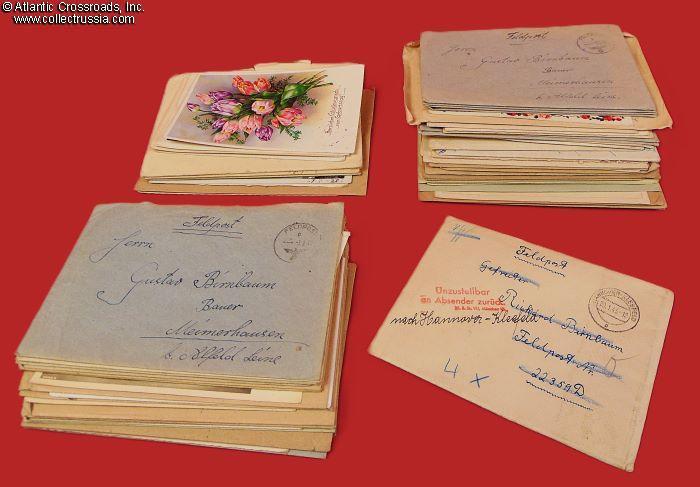 © Atlantic Crossroads, Inc.
www.collectrussia.com
Feldpost
Herrn
Gustav Birnbaum
Bauer
Meimerhausen
b. Alfeld Leine
Herzlichen Glückwunsch
zum Geburtstag
Feldpost
Herrn
Gustav Birnbaum
Bauer
Meimerhausen
b. Alfeld Leine
FELDPOST
Feldpost
Gefreiter
Unzustellbar
an Absender zurück
Richard Birnbaum
nach Hannover-Kleefeld
Feldpost Nr.
22359D
4 x